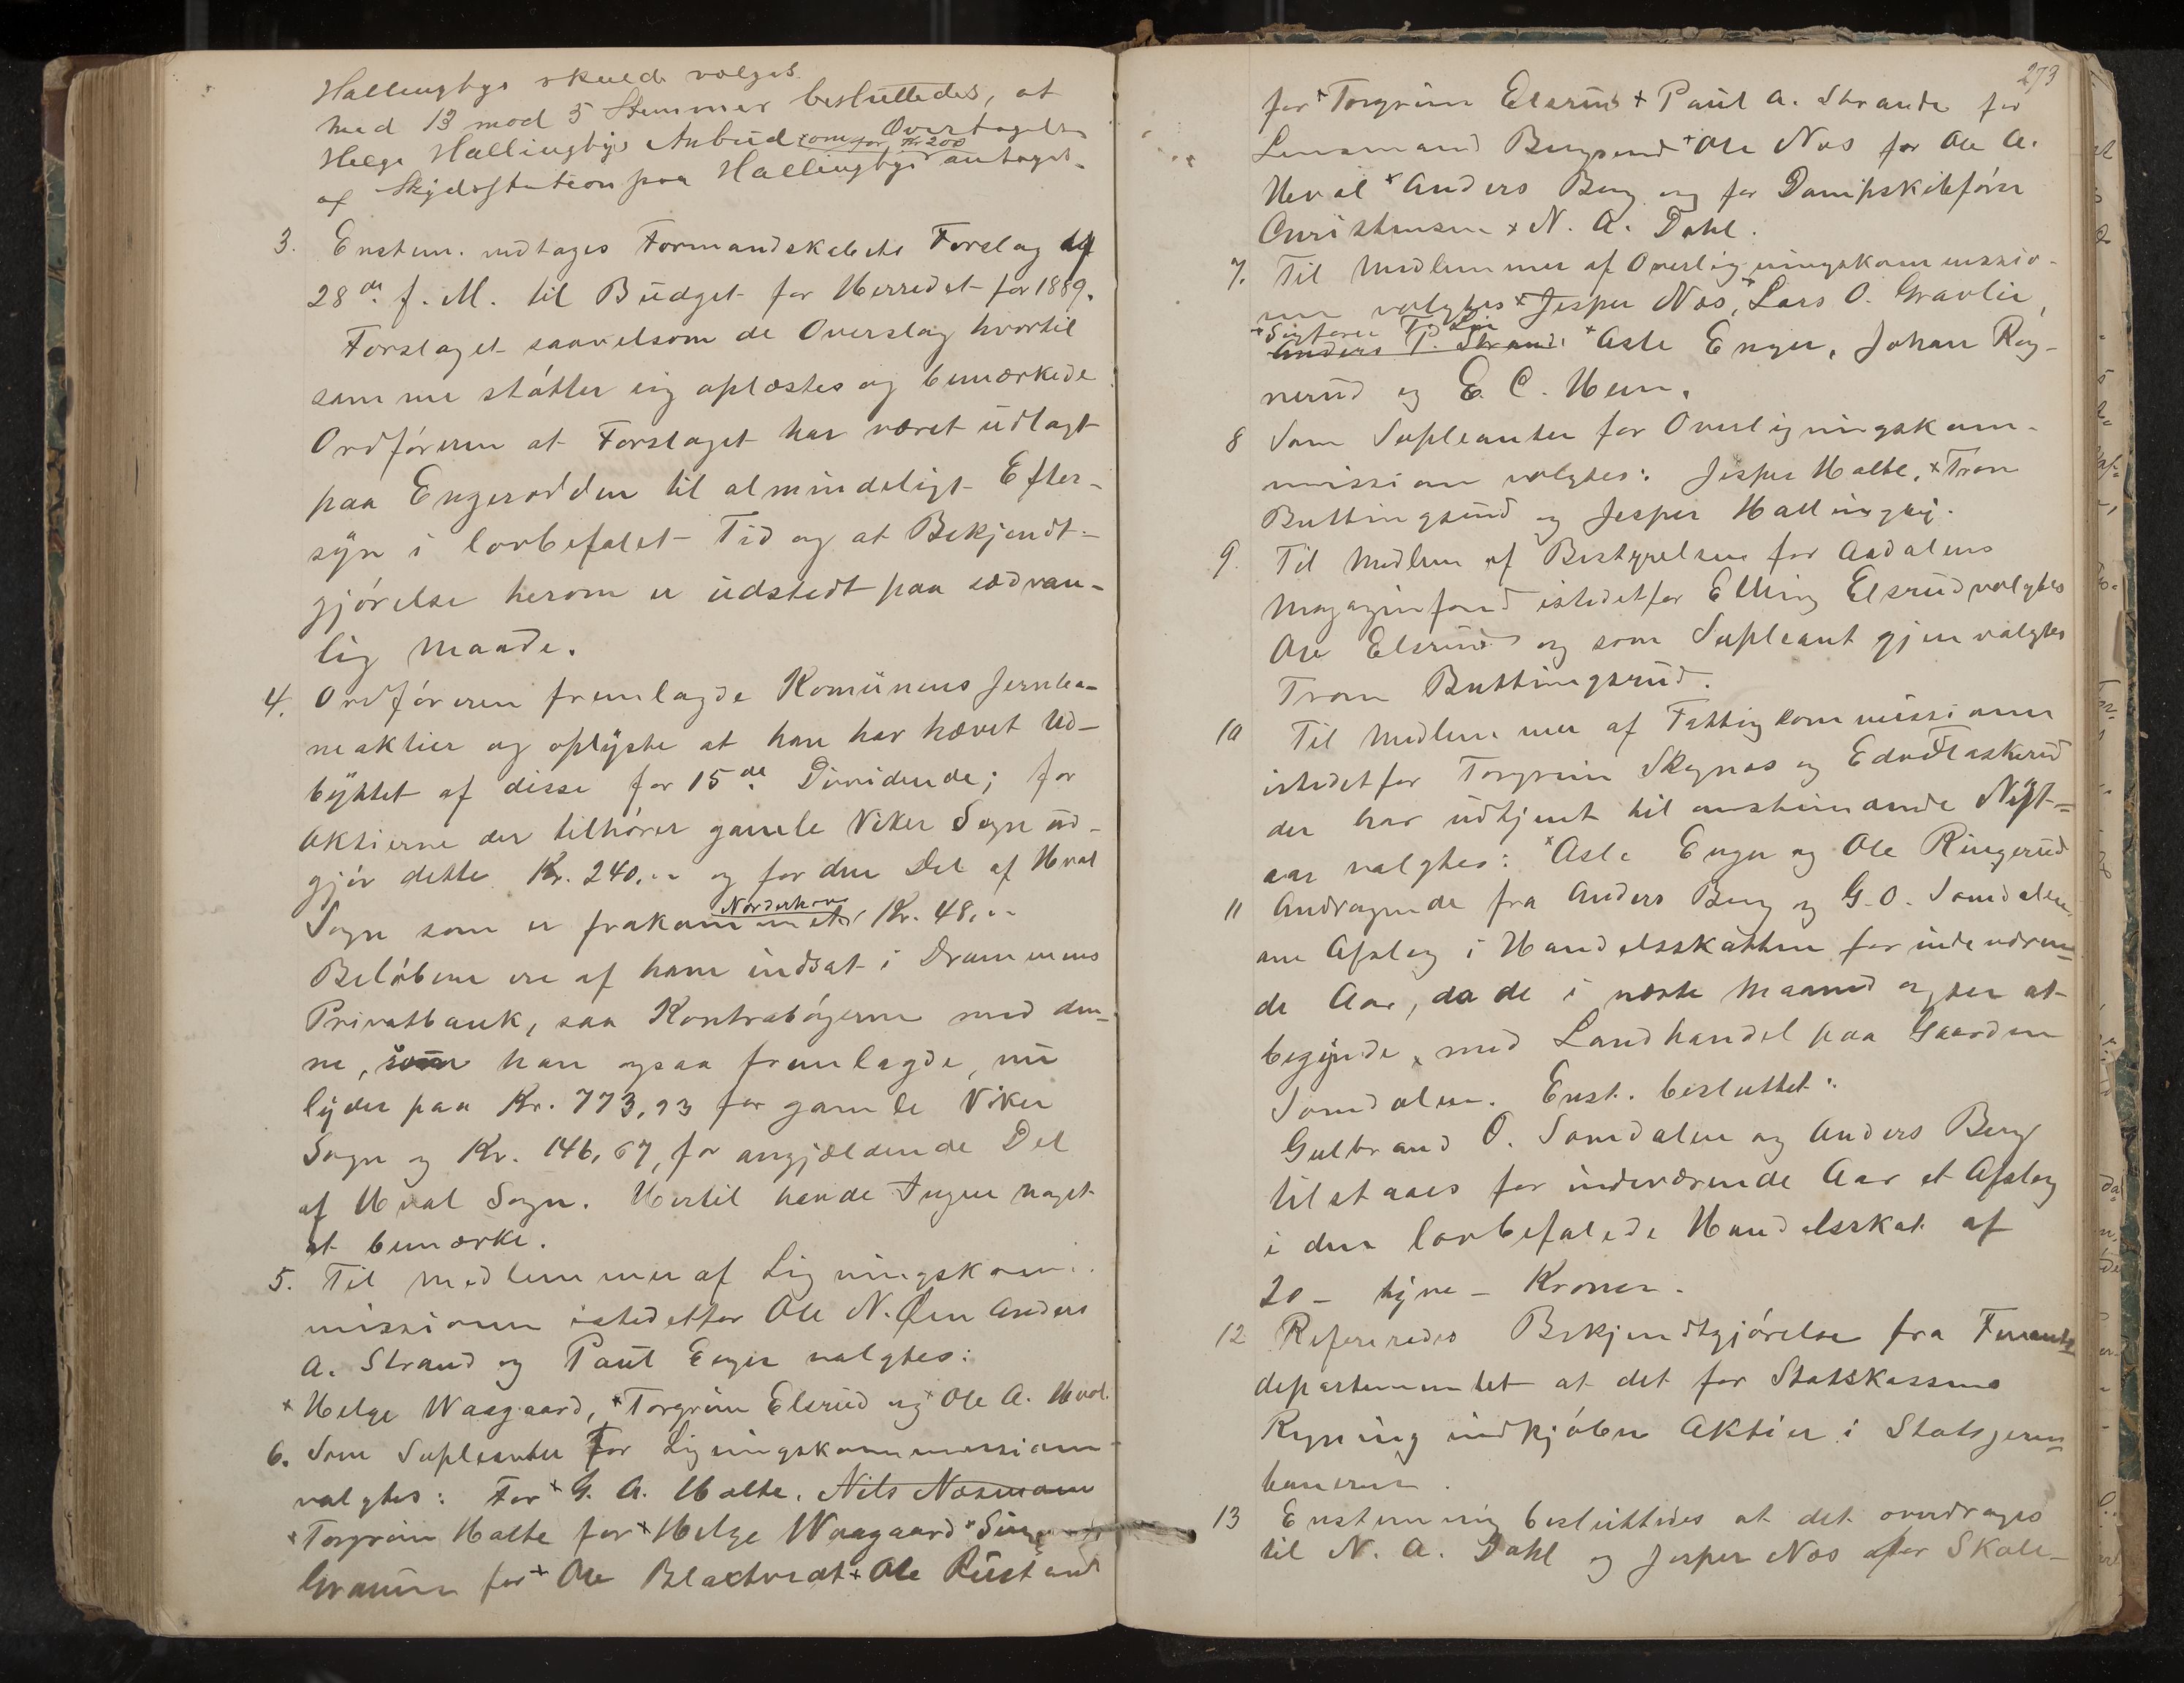 Hallingbys skulde vælges.
Med 13 mod 5 Stemmer besluttedes, at
Helge Hallingbys Anbud om Overtagelse
for Kr 200
af Skydsstation paa Hallingby antoges.
3. Enstem. vedtoges Formandskabets Forslag af
28de f. M. til Budget for Herredet for 1889.
Forslaget saavelsom de Overslag hvortil
samme støtter sig oplæstes og bemærkede
Ordføreren at Forslaget har været udlagt
paa Engerodden til almindeligt Efter-
syn i lovbefalet Tid og at Bekjendt-
gjørelse herom er udstedt paa sædvan-
lig Maade.
4. Ordføreren fremlagde Komunens Jernba-
neaktier og oplyste at han har hævet Ud-
byttet af disse for 15de Dividende; for
Aktierne der tilhører gamle Viker Sogn ud-
gjør dette Kr. 240.- og for den Del af Hval
Norderhov
Sogn som er frakommet Kr. 48.-
Beløbene ere af ham indsat i Drammens
Privatbank, saa Kontrabøgerne med den-
ne, som han ogsaa fremlagde, nu
lyder paa Kr. 773,93 for gamle Viker
Sogn og Kr. 146,67, for angjældende Del
af Hval Sogn. Hertil havde Ingen noget
at bemærke.
5. Til Medlemmer af Ligningskom-
missionen istedetfor Ole N. Øen Anders
A. Strand og Paul Enger valgtes:
× Helge Waagaard, × Torgrim Elsrud og × Ole A. Hval.
6. Som Supleanter for Ligningskommission
valgtes: For × G. A. Halte. Nils Næsmoen
× Torgrim Halte for × Helge Waagaard ×
for × Ole Blaktvedt × Ole Rustand
273
for × Torgrim Elsrud × Paul A. Strande for
Lensmand Bergsund × Ole Næs for Ole A.
Hval × Anders Berg og for Dampskibfører
Christensen × N. A. Dahl.
7. Til Medlemmer af Overligningskommissio-
nen valgtes × Jesper Næs, × Lars O. Gravlie,
Anders P. Strande × Asle Enger, Johan Røg-
nerud og E. C. Hem.
8 Som Supleanter for Overligningskom-
missionen valgtes: Jesper Halte, × Tron
Buttingsrud og Jesper Hallingby.
9. Til Medlem af Bestyrelsen for Aadalens
Magazinfond istedetfor Elling Elsrud valgtes
Ole Elsrud og som Supleant gjenvalgtes
Tron Buttingsrud.
10 Til Medlemmer af Fattigkommissionen
istedetfor Torgrim Skagnæs og Edv. Flaskerud
der har udtjent til anstundende Nyt-
aar valgtes: × Asle Enger og Ole Ringerud
11 Andragende fra Anders Berg og G. O. Somdalen
om Afslag i Handelsskatten for indeværen-
de Aar, da de i næste Maaned agter at
begynde med Landhandel paa Gaarden
Somdalen. Enst. besluttet:
Gulbrand O. Somdalen og Anders Berg
tilstaaes for indeværende Aar et Afslag
i den lovbefalede Handelsskat af
20 - tyve - Kroner.
12 Refereredes Bekjendtgjørelse fra Finants-
departementet at det for Statskassens
Regning indkjøber Aktier i Statsjern-
banerne.
13 Enstemmig besluttedes at det overdrages
til N. A. Dahl og Jesper Næs for Skole-